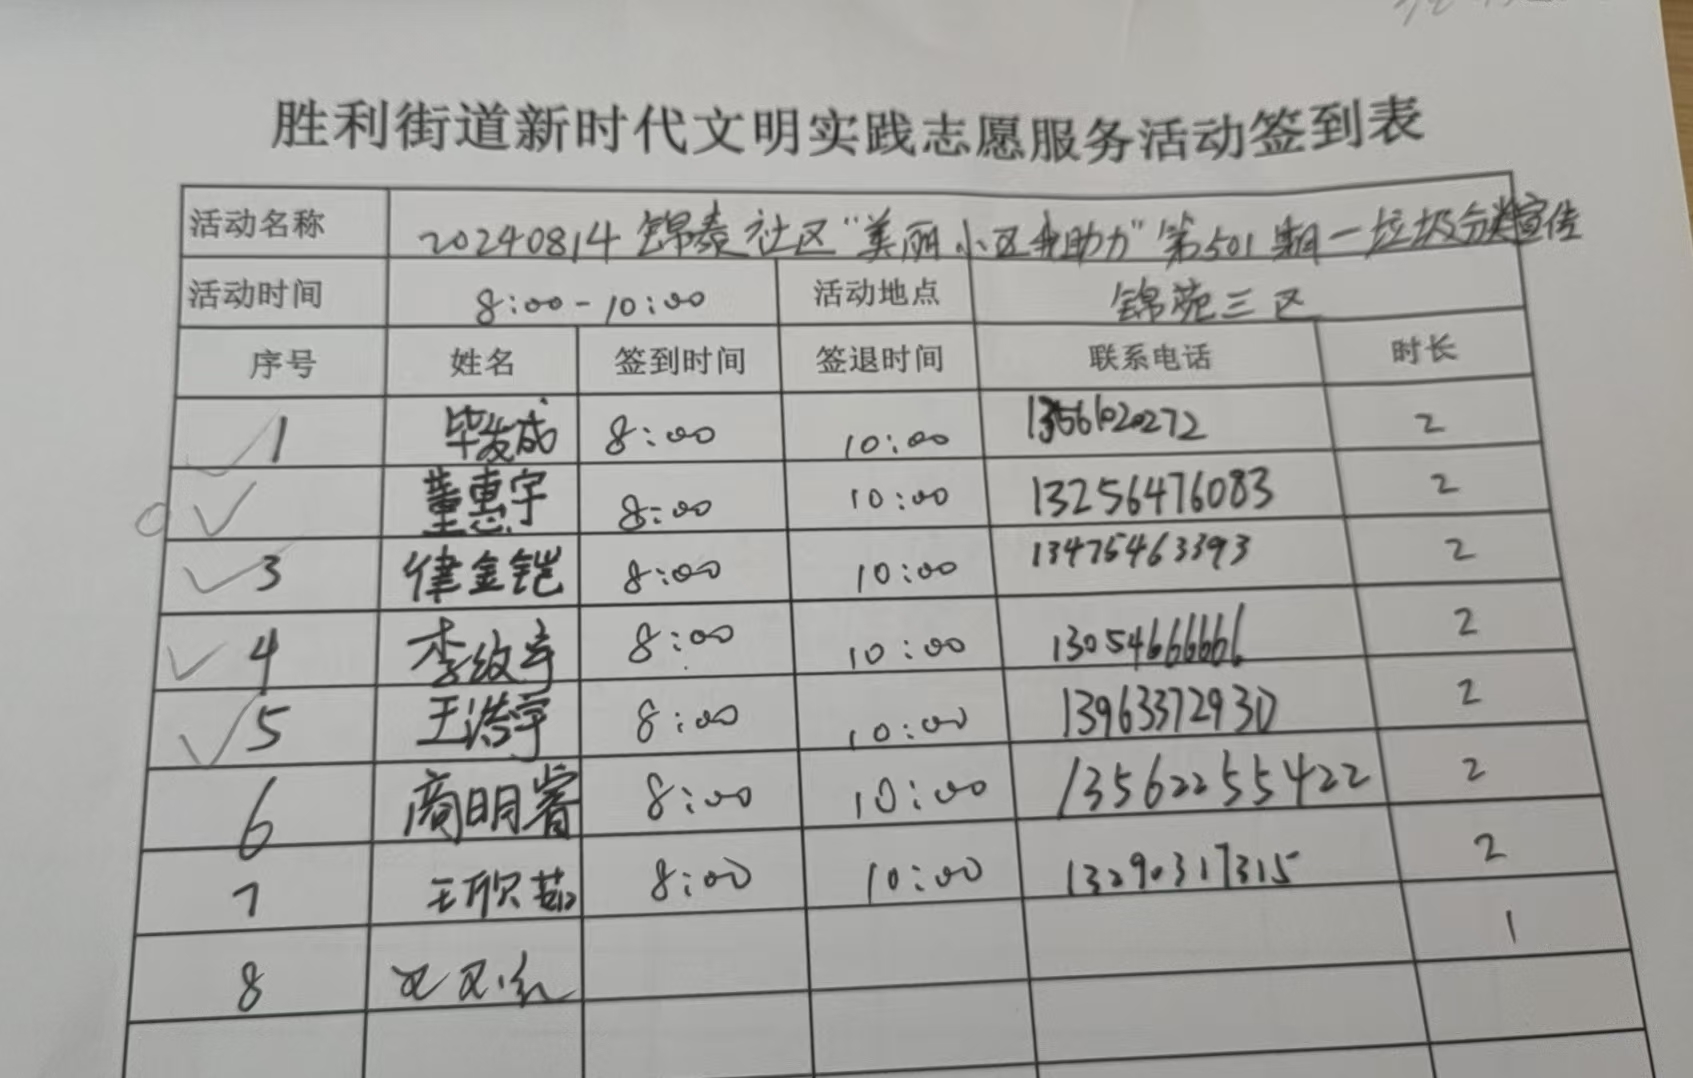 胜利街道新时代文明实践志愿服务活动签到表
活动名称 20240814锦泰社区"美丽小区我助力"第501期一垃圾分类宣传
活动时间 8:00-10:00 活动地点 锦苑三区
序号 姓名 签到时间 签退时间 联系电话 时长
1 毕发成 8:00 10:00 2
董惠宇 8:00 10:00 13256476083 2
3 律金铠 8:00 10:00 13475463393 2
4 8:00 10:00 13054666666 2
5 王浩宇 8:00 10:00 13963372930 2
6 商明睿 8:00 10:00 13562255422 2
7 王欣茹 8:00 10:00 13290317315 2
8 1